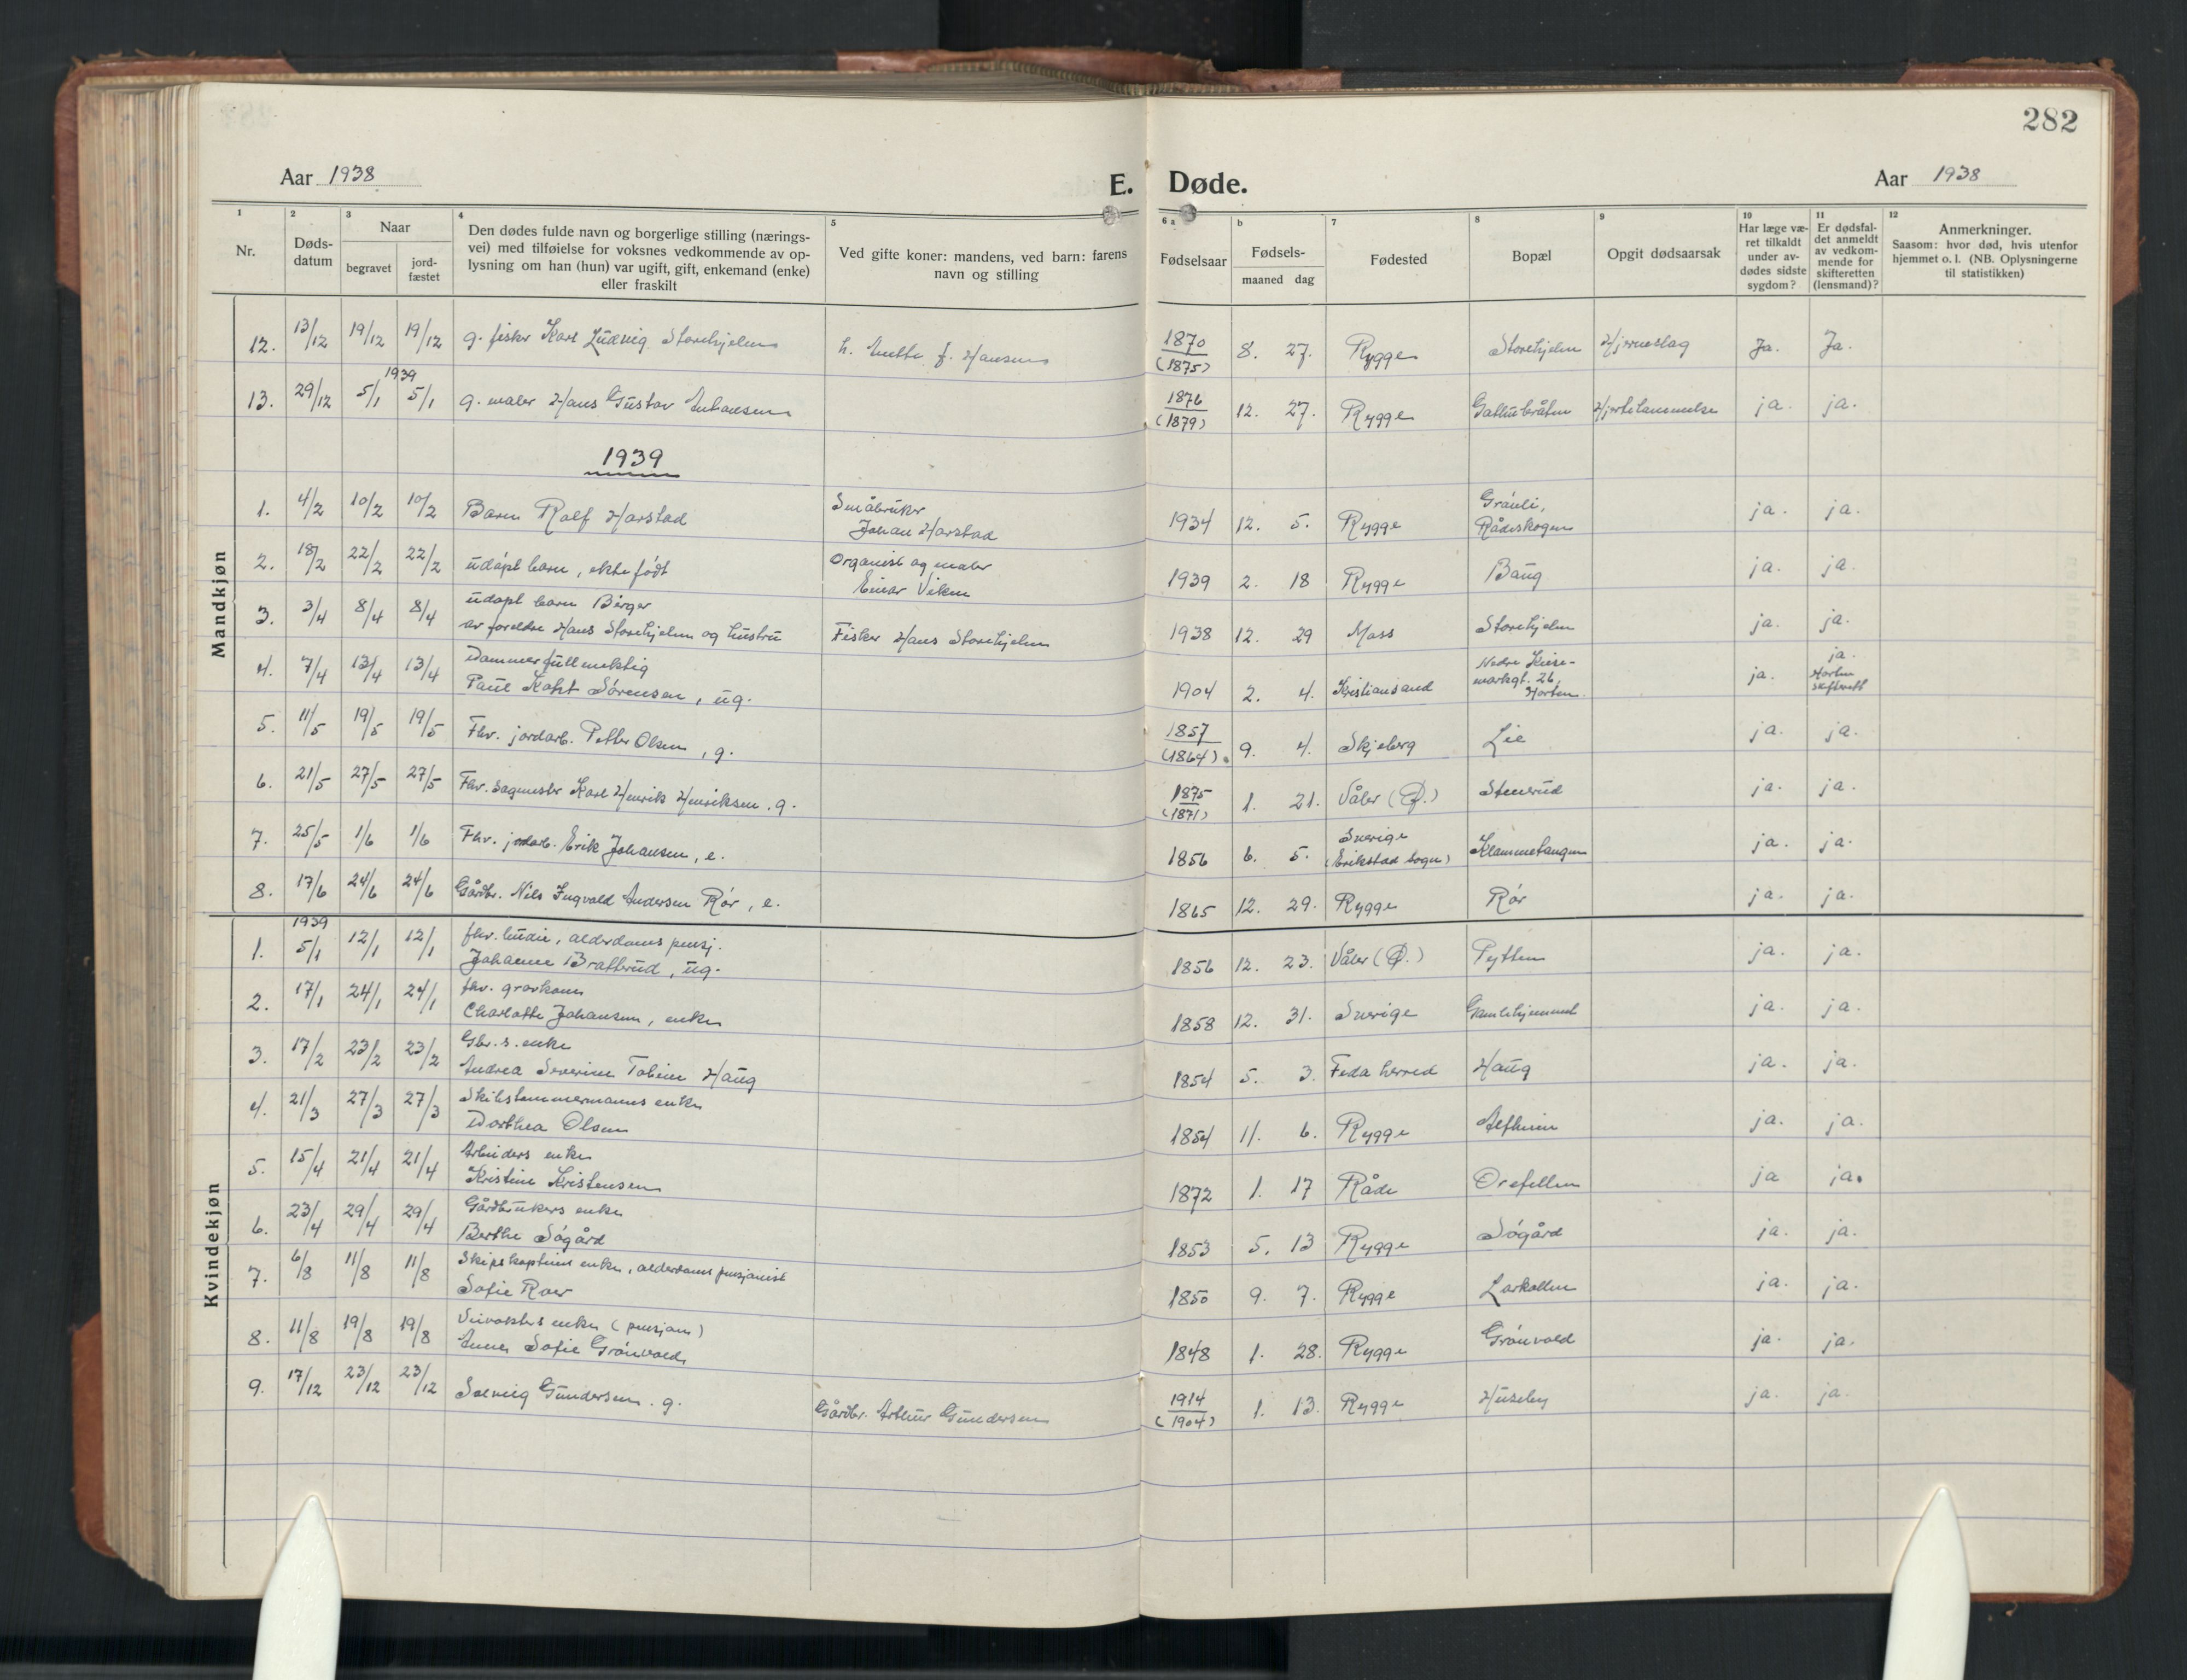 282
Aar 1938
E. Døde.
Aar 1938
1 2 3 4 5 6 a b 7 8 9 10 11 12
Nr.
Døds-
datum
Naar
begravet
jord-
fæstet
Den dødes fulde navn og borgerlige stilling (nærings-
vei) med tilføielse for voksnes vedkommende av op-
lysning om han (hun) var ugift, gift, enkemand (enke)
eller fraskilt
Ved gifte koner: mandens, ved barn: farens
navn og stilling
Fødselsaar
Fødsels-
maaned dag
Fødested
Bopæl
Opgit dødsaarsak
Har læge væ-
ret tilkaldt
under av-
dødes sidste
sygdom?
Er dødsfal-
det anmeldt
av vedkom-
mende for
skifteretten
(lensmand)?
Anmerkninger.
Saasom: hvor død, hvis utenfor
hjemmet o. l. (NB. Oplysningerne
til statistikken)
Mandkjøn
12. 13/12 19/12 19/12 g. fisker Karl Ludvig Storehjelm h. f. Hansen 1870 (1875) 8. 27. Rygge Storehjelm Hjerneslag Ja. Ja.
1939
13. 29/12 5/1 5/1 g. maler Hans Gustav Johansen 1876 (1879) 12. 27. Rygge Hjertelammelse ja. ja.
1939
1. 4/2 10/2 10/2 Barn Rolf Harstad Småbruker Johan Harstad 1934 12. 5. Rygge Grånli, Rådeskogen ja. ja.
2. 18/2 22/2 22/2 udøpt barn, ekte født Organist og maler Einar Viken 1939 2. 18 Rygge Baug ja. ja.
3. 3/4 8/4 8/4 udøpt barn Birger
av foreldre Hans Storehjelm og hustru Fisker Hans Storehjelm 1938 12. 29 Moss Storehjelm ja. ja.
4. 7/4 13/4 13/4 Dommerfullmektig
Paul Sørensen, ug. 1904 2. 4. Kristiansand Nedre Keise-
markgt. 26, Horten. ja. ja. Horten skifterett
5. 11/5 19/5 19/5 Fhv. jordarb. Petter Olsen, g. 1857 (1864). 9. 4. Skjeberg Lie ja. ja.
6. 21/5 27/5 27/5 Fhv. sagmester Karl Henrik Henriksen. g. 1875 (1871) 1. 21. Våler (Ø.) Stenerud ja. ja.
7. 25/5 1/6 1/6 Fhv. jordarb. Erik Johansen, e. 1856 6. 5. Sverige (Erikstad sogn) Klommetangen ja. ja.
8. 17/6 24/6 24/6 Gårdbr. Nils Ingvald Andersen Rør, e. 1865 12. 29. Rygge Rør ja. ja.
Kvindekjøn
1939
1. 5/1 12/1 12/1 fhv. budeie, alderdoms pensj.
Johanne Brattrud, ug. 1856 12. 23. Våler (Ø.) Pytten ja. ja.
2. 17/1 24/1 24/1 fhv. gravkone
Charlotte Johansen, enke 1858 12. 31. Sverige Gamlehjemmet ja. ja.
3. 17/2 23/2 23/2 Gbr.s. enke
Andrea Severine Tobine Haug 1854 5. 3. Feda herred Haug ja. ja.
4. 21/3 27/3 27/3 Skibstømmermanns enke
Dorthea Olsen 1854 11. 6. Rygge Alfheim ja. ja.
5. 15/4 21/4 21/4 Arbeiders enke
Kristine Kristensen 1872 1. 17 Råde Orefellen ja ja.
6. 23/4 29/4 29/4 Gårdbrukers enke
Berthe Søgård 1853 5. 13 Rygge Søgård ja. ja.
7. 6/8 11/8 11/8 Skipskapteins enke, alderdoms pensjonist
Sofie Roer 1850 9. 7. Rygge Larkollen ja. ja.
8. 11/8 19/8 19/8 Veivokters enke (pensjon)
Anne Sofie Grønvold 1848 1. 28. Rygge Grønvold ja. ja.
9. 17/12 23/12 23/12 Solveig Gundersen. g. Gårdbr. Arthur Gundersen 1914 (1904) 1. 13. Rygge Huseby ja. ja.